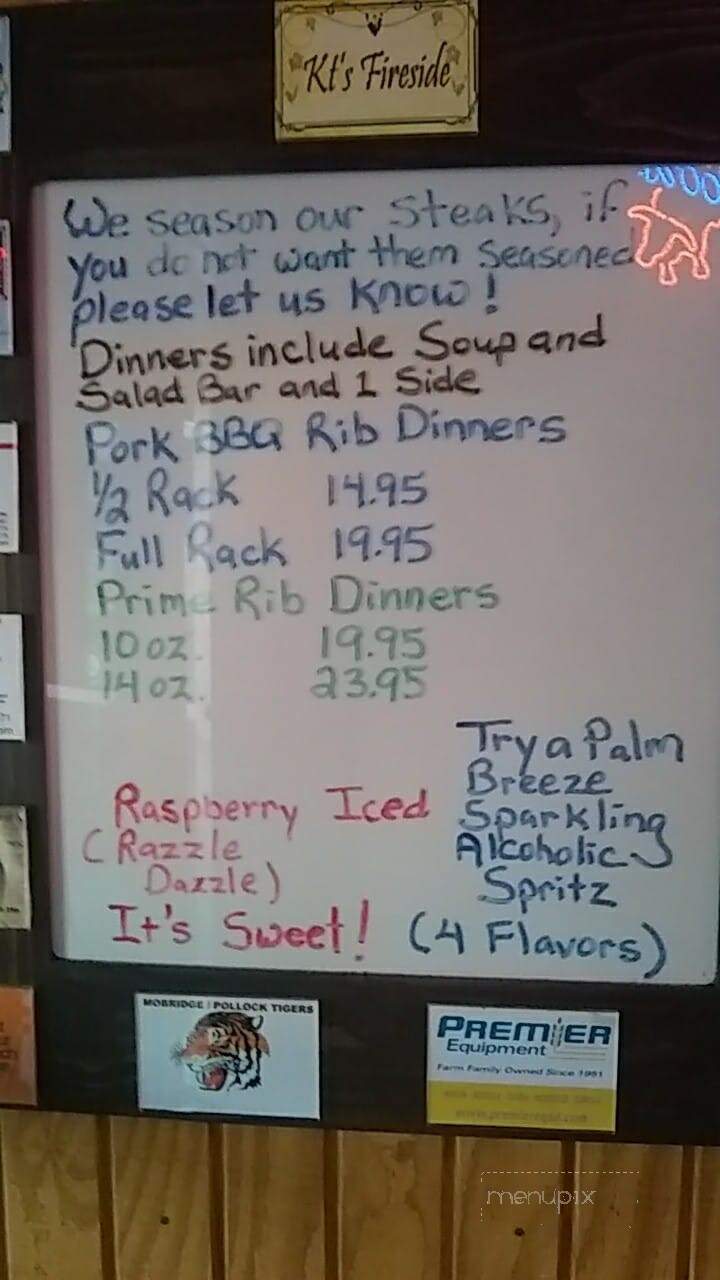 Kt's Fireside
We season our Steaks, if
you do not want them Seasoned
please let us know!
Dinners include Soup and
Salad Bar and 1 Side
Pork BBQ Rib Dinners
1/2 Rack 14.95
Full Rack 19.95
Prime Rib Dinners
10 oz. 19.95
14 oz. 23.95
Raspberry Iced
(Razzle
Dazzle)
It's Sweet!
Try a Palm
Breeze
Sparkling
Alcoholic
Spritz
(4 Flavors)
MOBRIDGE / POLLOCK TIGERS
PREMIER
Equipment
Farm Family Owned Since 1951
menupix